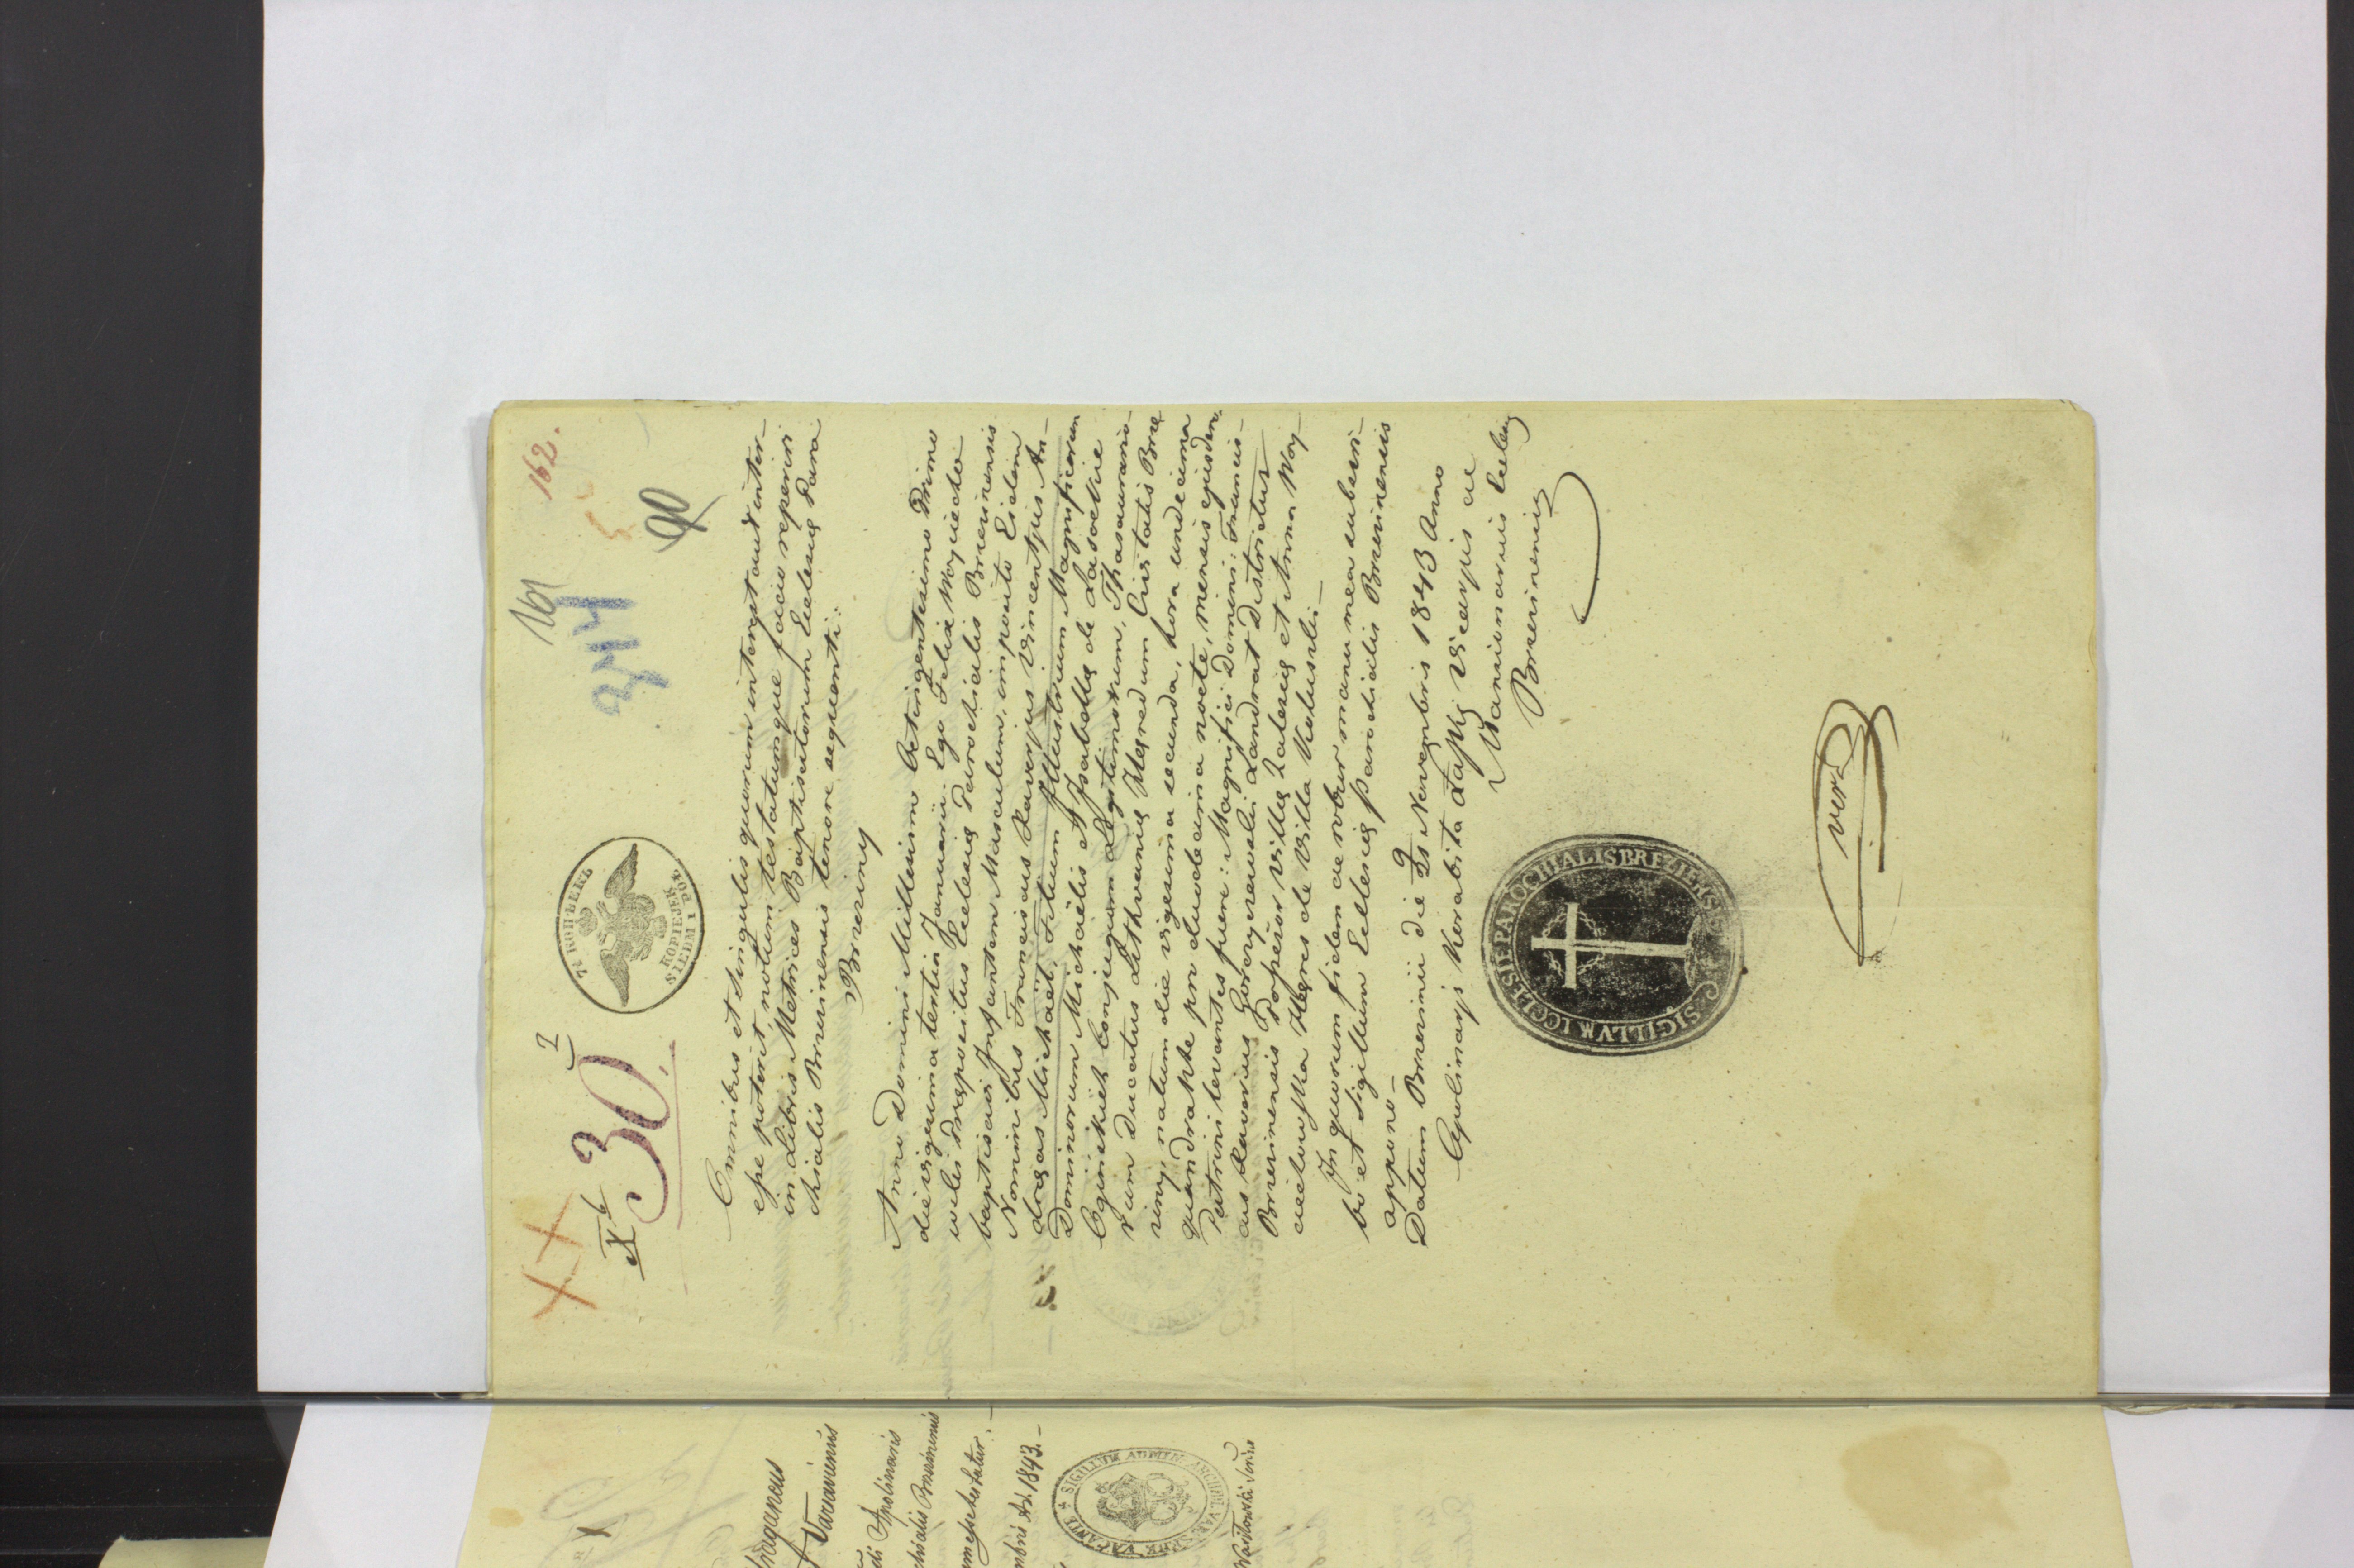 161
162.
344
90
X 6
30.
7½ КОПѢЕКЪ
KOPIEJEK
STĘEM I PÓŁ
Omnibus et Singulis quorum interest aut inter-
esse poterit, notum testatumque facio reperiri
in Libris Metrices Baptisatorum Ecclesiæ Paro
chialis Brzezinensis tenore sequenti:
Brzeziny
Anno Domini Millesimo Octingentesimo Primo
die vigesima tertia Januarii. Ego Felix Woyciecho
wski Præpositus Ecclesiæ Parochialis Brzezinensis
baptisavi Infantem Masculum, imposito Eidem
Nominibus Franciscus Xaverius Vincentius An-
dreas Michaël, Filium Illustrium Magnificorum
Dominorum Michaëlis et Isabellæ de Lasockie
Oginskich Conjugum Legitimorum, Thasaurario-
rum Ducatus Lithvaniæ Hæredum Civitatis Brze
ziny, natum die vigesima secunda, hora undecima
quandrante pro duodecima nocte, mensis ejusdem,
Patrini levantes fuere: Magnifici Domini: Francis-
cus Xaverius Landrat Districtus
Brzezinensis Possesor Villæ et Anna Woy-
Hæres de Villa
In quorum fidem ac robur manu mea subscri-
bo et Sigillum Ecclesiæ Parochialis Brzezinensis
appono-
Datum Brzezinii die 9 Novembris 1843 Anno
Apolinary Korabita Laski Vicarius ac
Mansionarius Eccle
Brzezinensis
SIGILLVM ECCLESIE PAROCHIALIS BREZIENSIS
vera
Varsaviensis
di Apolinaris
chialis Brzezinensis
mbris Ad. 1843.-
SIGILLVM ADMIN. ARCHIDI. VARS. SEDE VACANTE